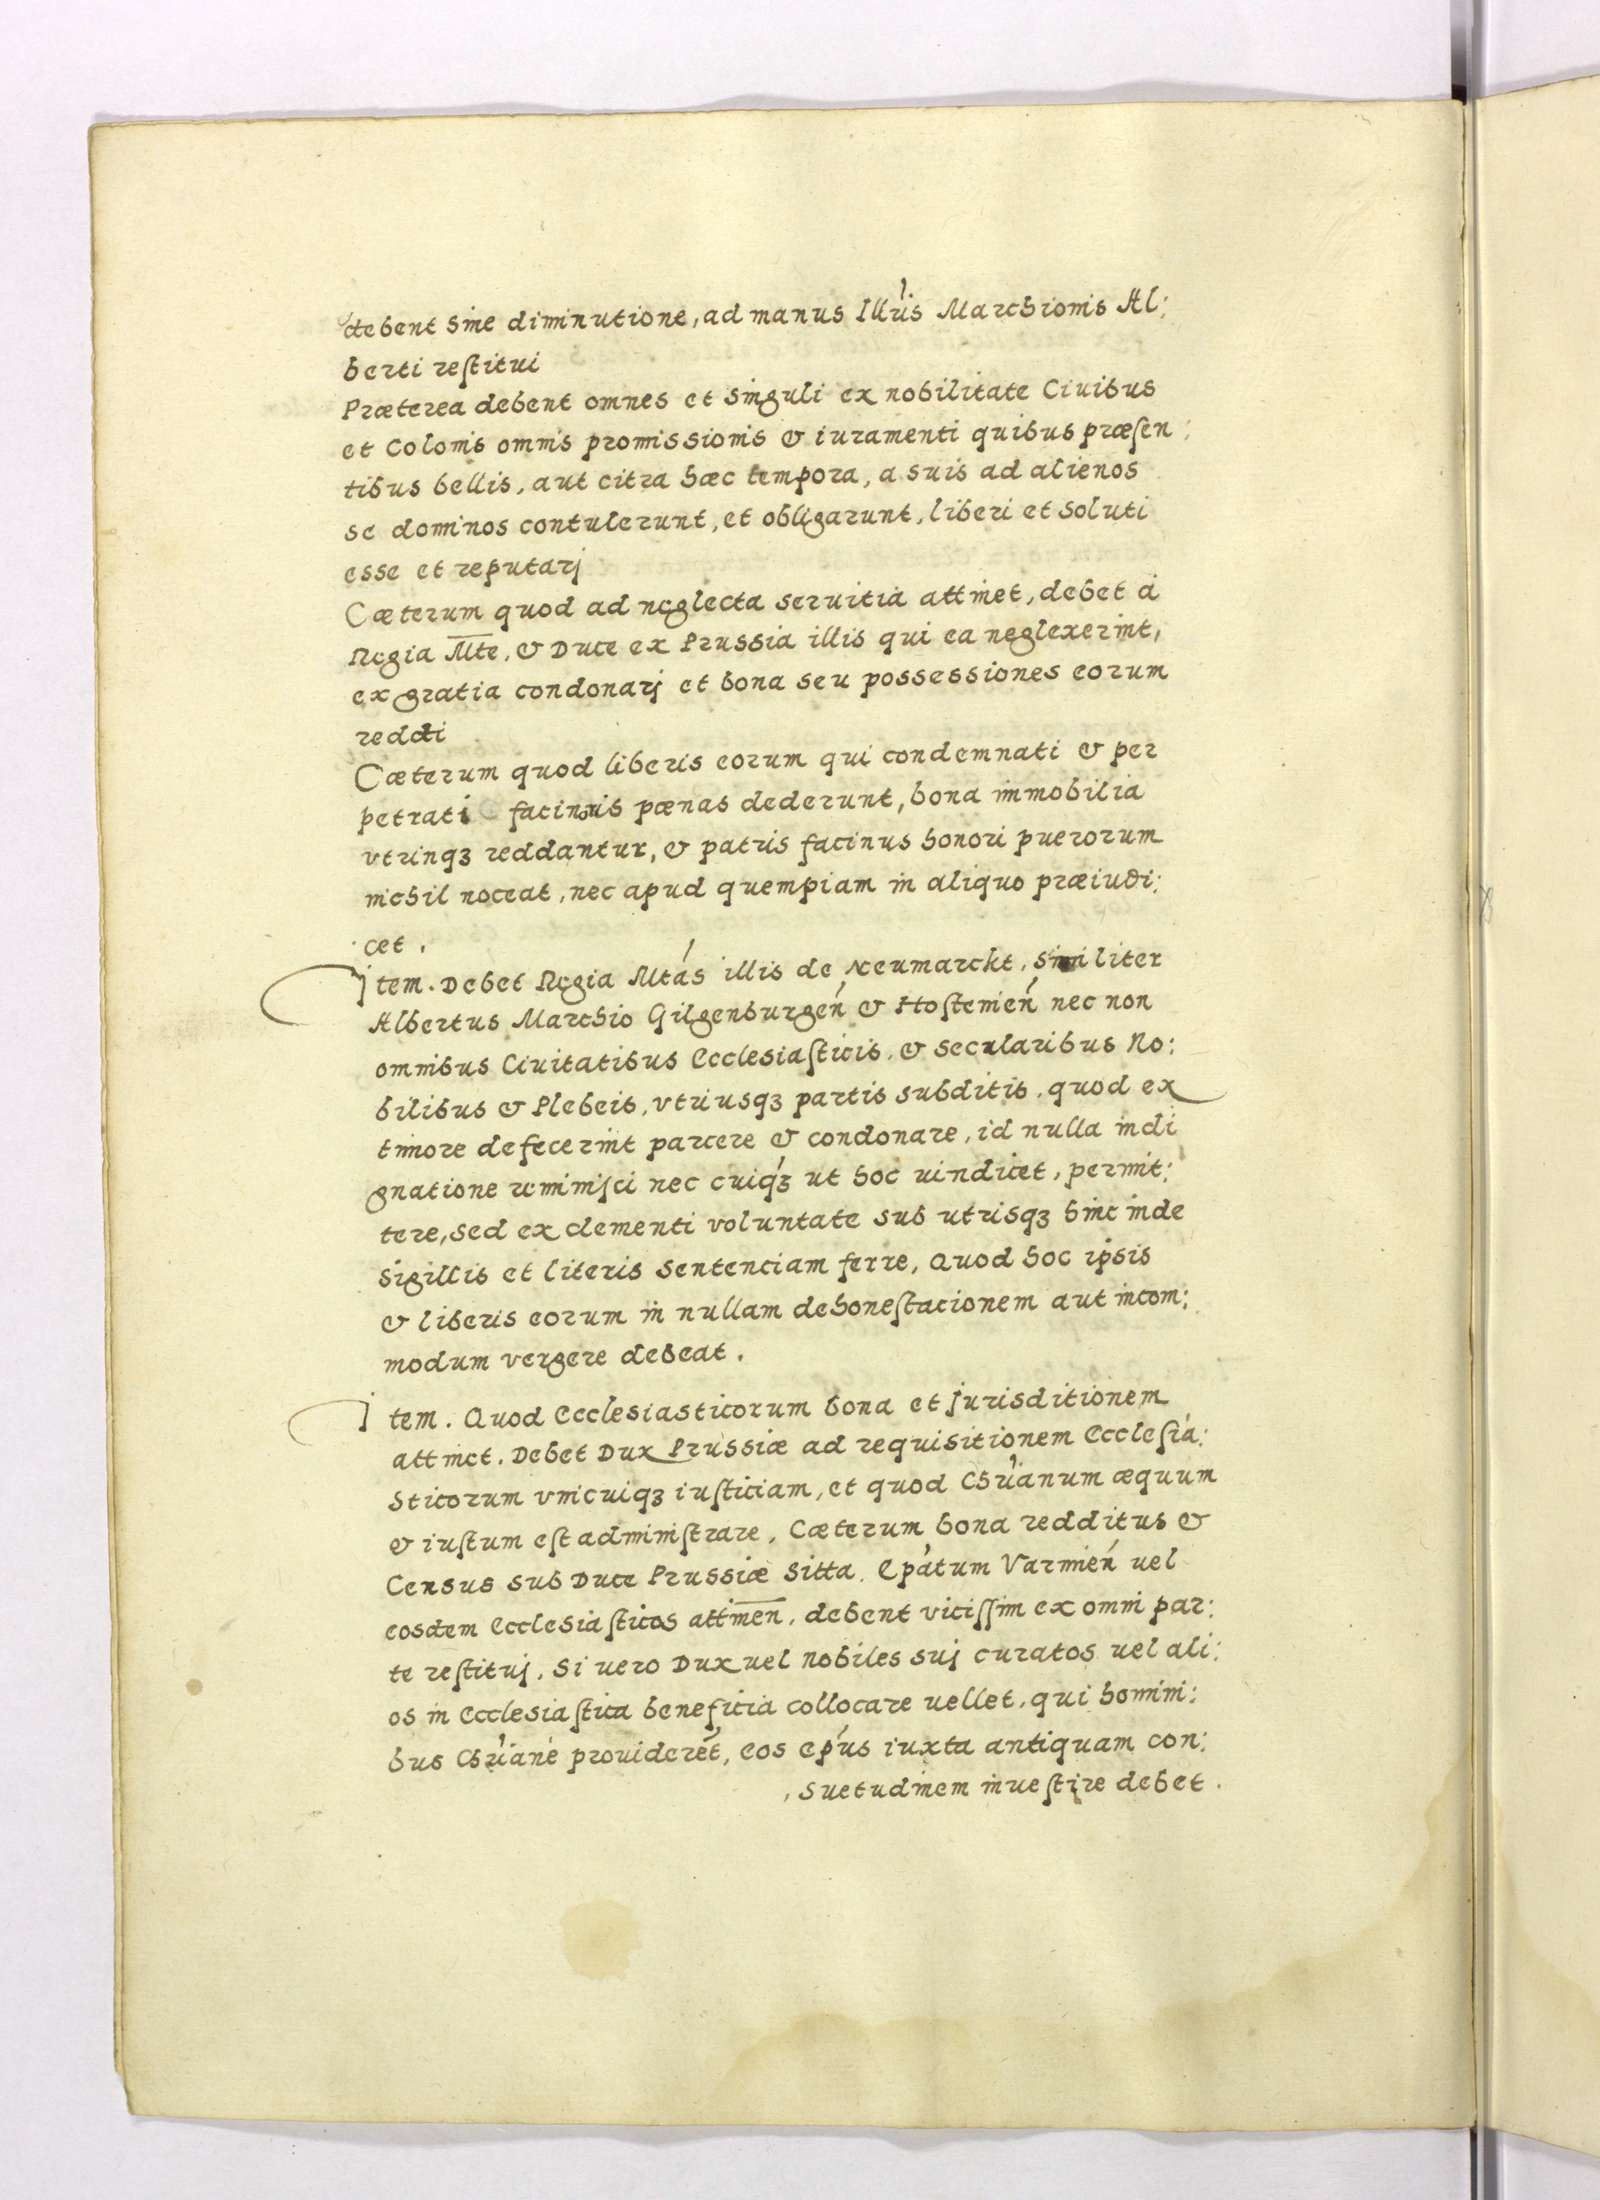 debent sine diminutione, ad manus Illris Marchionis Al:
berti restitui
Præterea debent omnes et singuli ex nobilitate Ciuibus
et Colonis omnis promissionis & iuramenti quibus præsen:
tibus bellis, aut citra hæc tempora, a suis ad alienos
se dominos contulerunt, et obligarunt, liberi et soluti
esse et reputarj
Cæterum quod ad neglecta seruitia attinet, debet à
Regia Mte, & Duce ex Prussia illis qui ea neglexerint,
ex gratia condonarj et bona seu possessiones eorum
reddi
Cæterum quod liberis eorum qui condemnati & per
petrati facinoris pœnas dederunt, bona immobilia
vtrinqꝫ reddantur, & patris facinus honori puerorum
nichil noceat, nec apud quempiam in aliquo præiudi:
cet.
Jtem. Debet Regia Mtás illis de Neumarckt, similiter
Albertus Marchio Gilgenburgeń & Hostenień nec non
omnibus Ciuitatibus Ecclesiasticis, & secularibus No:
bilibus & Plebeis, vtriusqꝫ partis subditis, quod ex
timore defecerint parcere & condonare, id nulla indi
gnatione reminisci nec cuiqꝫ ut hoc uindicet, permit:
tere, sed ex clementi voluntate sub utrisqꝫ hinc inde
sigillis et literis sentenciam ferre, Quod hoc ipsis
& liberis eorum in nullam dehonestacionem aut incom:
modum vergere debeat.
Jtem. Quod Ecclesiasticorum bona et Jurisditionem
attinet. Debet Dux Prussiæ ad requisitionem Ecclesia:
sticorum vnicuiqꝫ iusticiam, et quod Chrianum æquum
& iustum est administrare, Cæterum bona redditus &
Census sub Duce Prussiæ sitta. Epátum Varmień uel
eosdem Ecclesiasticos attinen̄, debent vicissim ex omni par:
te restituj, Si uero Dux uel Nobiles suj curatos uel ali:
os in Ecclesiastica beneficia collocare uellet, qui homini:
bus Chriane prouideret, eos epús iuxta antiquam con:
suetudinem inuestire debet.